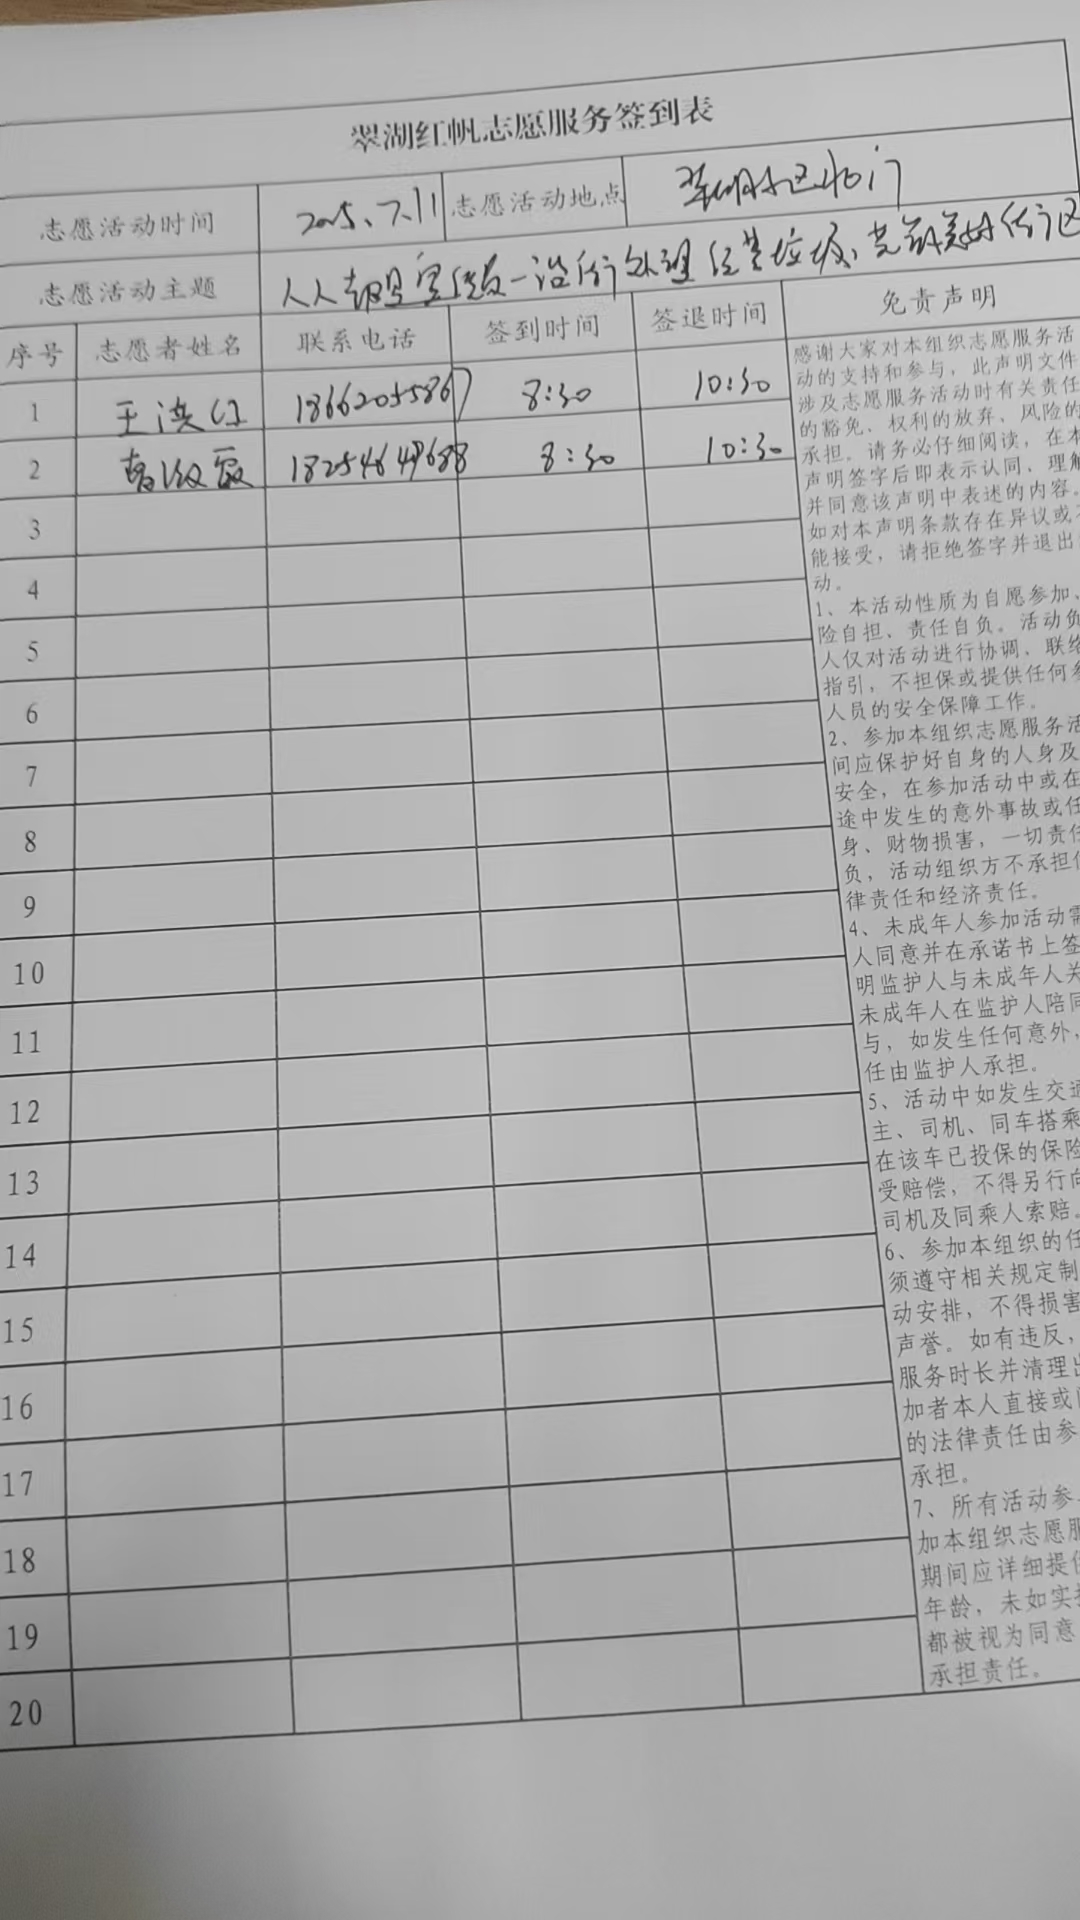 翠湖红帆志愿服务签到表
志愿活动时间 2025.7.11 志愿活动地点 翠湖小区北门
志愿活动主题 人人都是宣传员—沿街处理 垃圾、共筑美好街区
序号 志愿者姓名 联系电话 签到时间 签退时间 免责声明
1 王洪 18662055867 8:30 10:30
2 18254649688 8:30 10:30
3
4
5
6
7
8
9
10
11
12
13
14
15
16
17
18
19
20
感谢大家对本组织志愿服务活
动的支持和参与，此声明文件
涉及志愿服务活动时有关责任
的豁免、权利的放弃、风险的
承担。请务必仔细阅读，在本
声明签字后即表示认同、理解
并同意该声明中表述的内容。
如对本声明条款存在异议或不
能接受，请拒绝签字并退出
动。
1、本活动性质为自愿参加、
险自担、责任自负。活动负
人仅对活动进行协调、联络
指引，不担保或提供任何参
人员的安全保障工作。
2、参加本组织志愿服务活
间应保护好自身的人身及
安全，在参加活动中或在
途中发生的意外事故或任
身、财物损害，一切责任
负，活动组织方不承担任
律责任和经济责任。
4、未成年人参加活动需
人同意并在承诺书上签
明监护人与未成年人关
未成年人在监护人陪同
与，如发生任何意外，
任由监护人承担。
5、活动中如发生交通
主、司机、同车搭乘
在该车已投保的保险
受赔偿，不得另行向
司机及同乘人索赔。
6、参加本组织的任
须遵守相关规定制
动安排，不得损害
声誉。如有违反，
服务时长并清理出
加者本人直接或间
的法律责任由参
承担。
7、所有活动参
加本组织志愿服
期间应详细提供
年龄，未如实提
都被视为同意
承担责任。